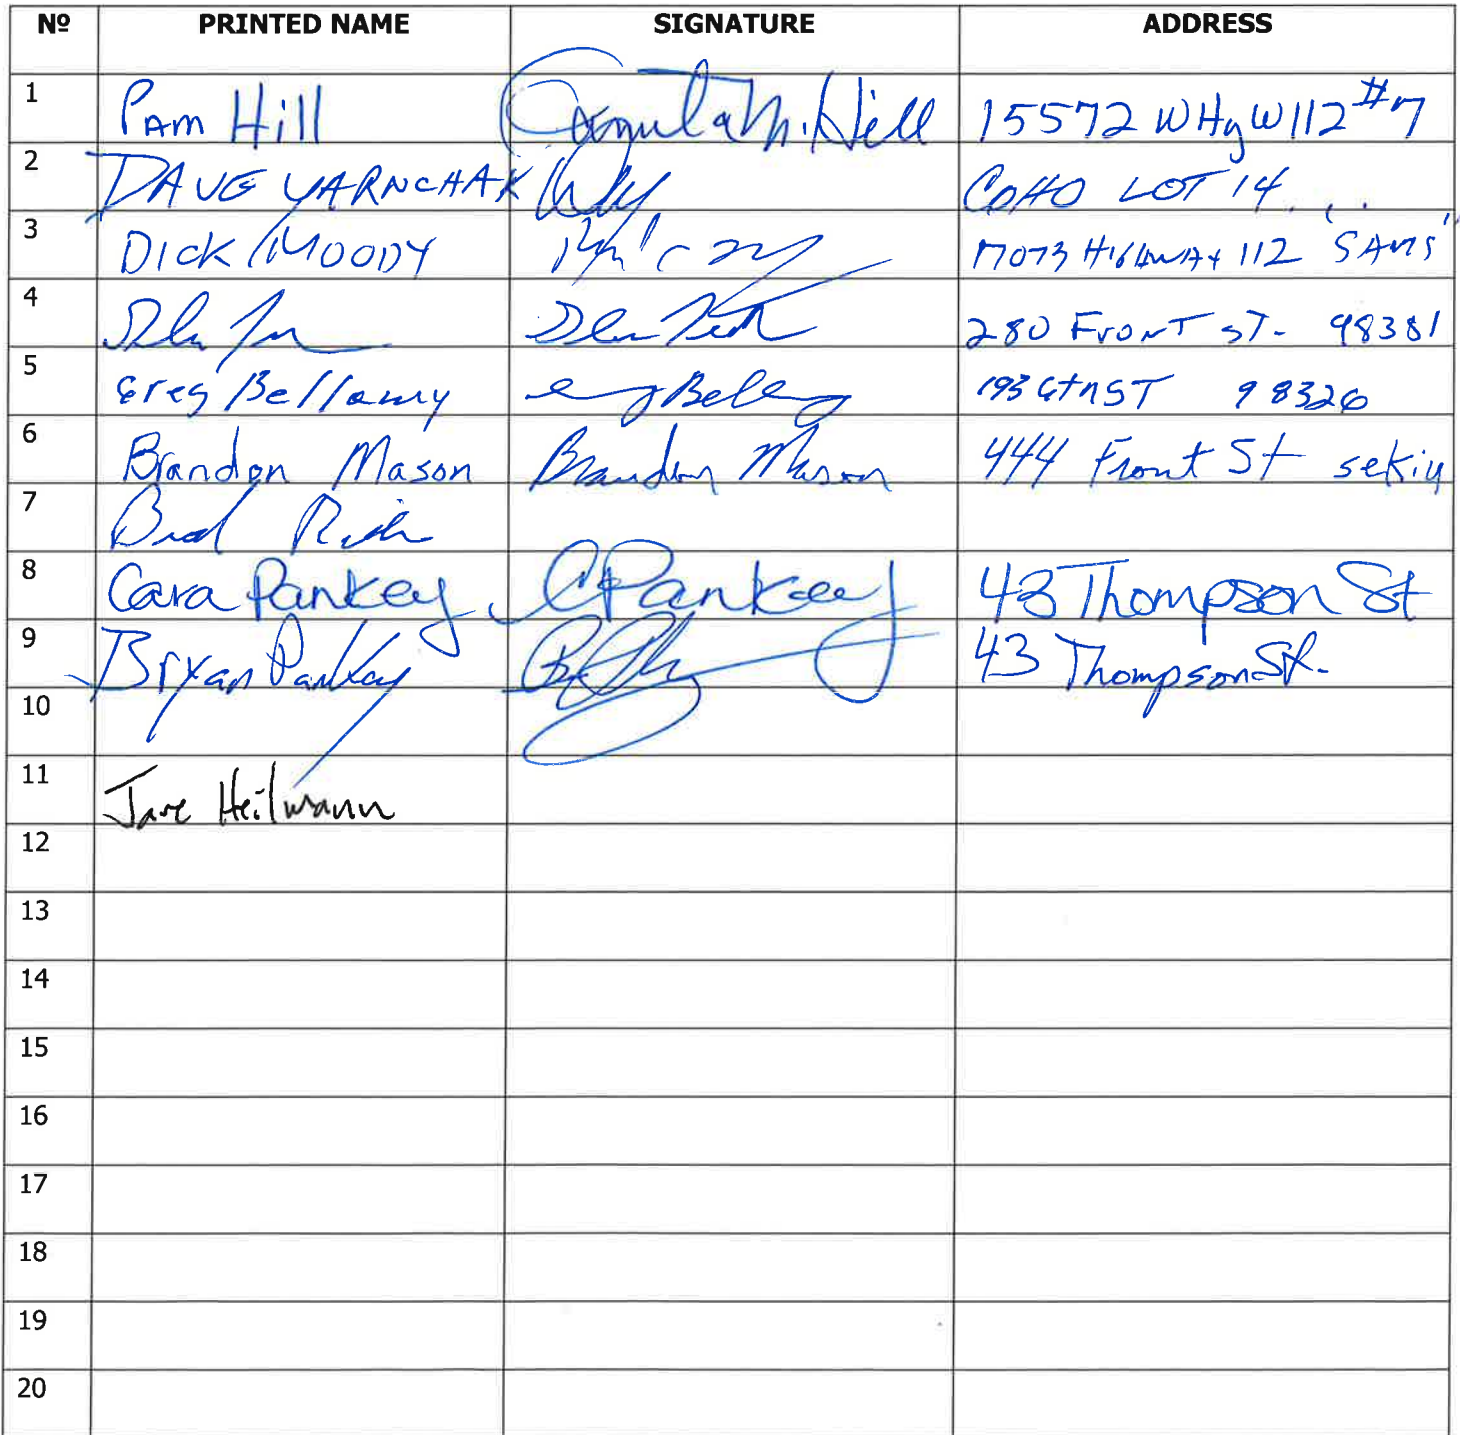 Nº PRINTED NAME SIGNATURE ADDRESS
1 Pam Hill Pamela M. Hill 15572 W Hgy W112 #7
2 DAVE YARNCHAK COHO LOT 14
3 DICK MOODY 17073 HIGHWAY 112 "SAMS"
4 280 FRONT ST. 98381
5 Greg Bellamy 98326
6 Brandon Mason Brandon Mason 444 Front St sekiu
7 Brad
8 Cara Pankey C Pankey 43 Thompson St
9 Bryan Pankey 43 Thompson St.
10
11 Jane Heilmann
12
13
14
15
16
17
18
19
20